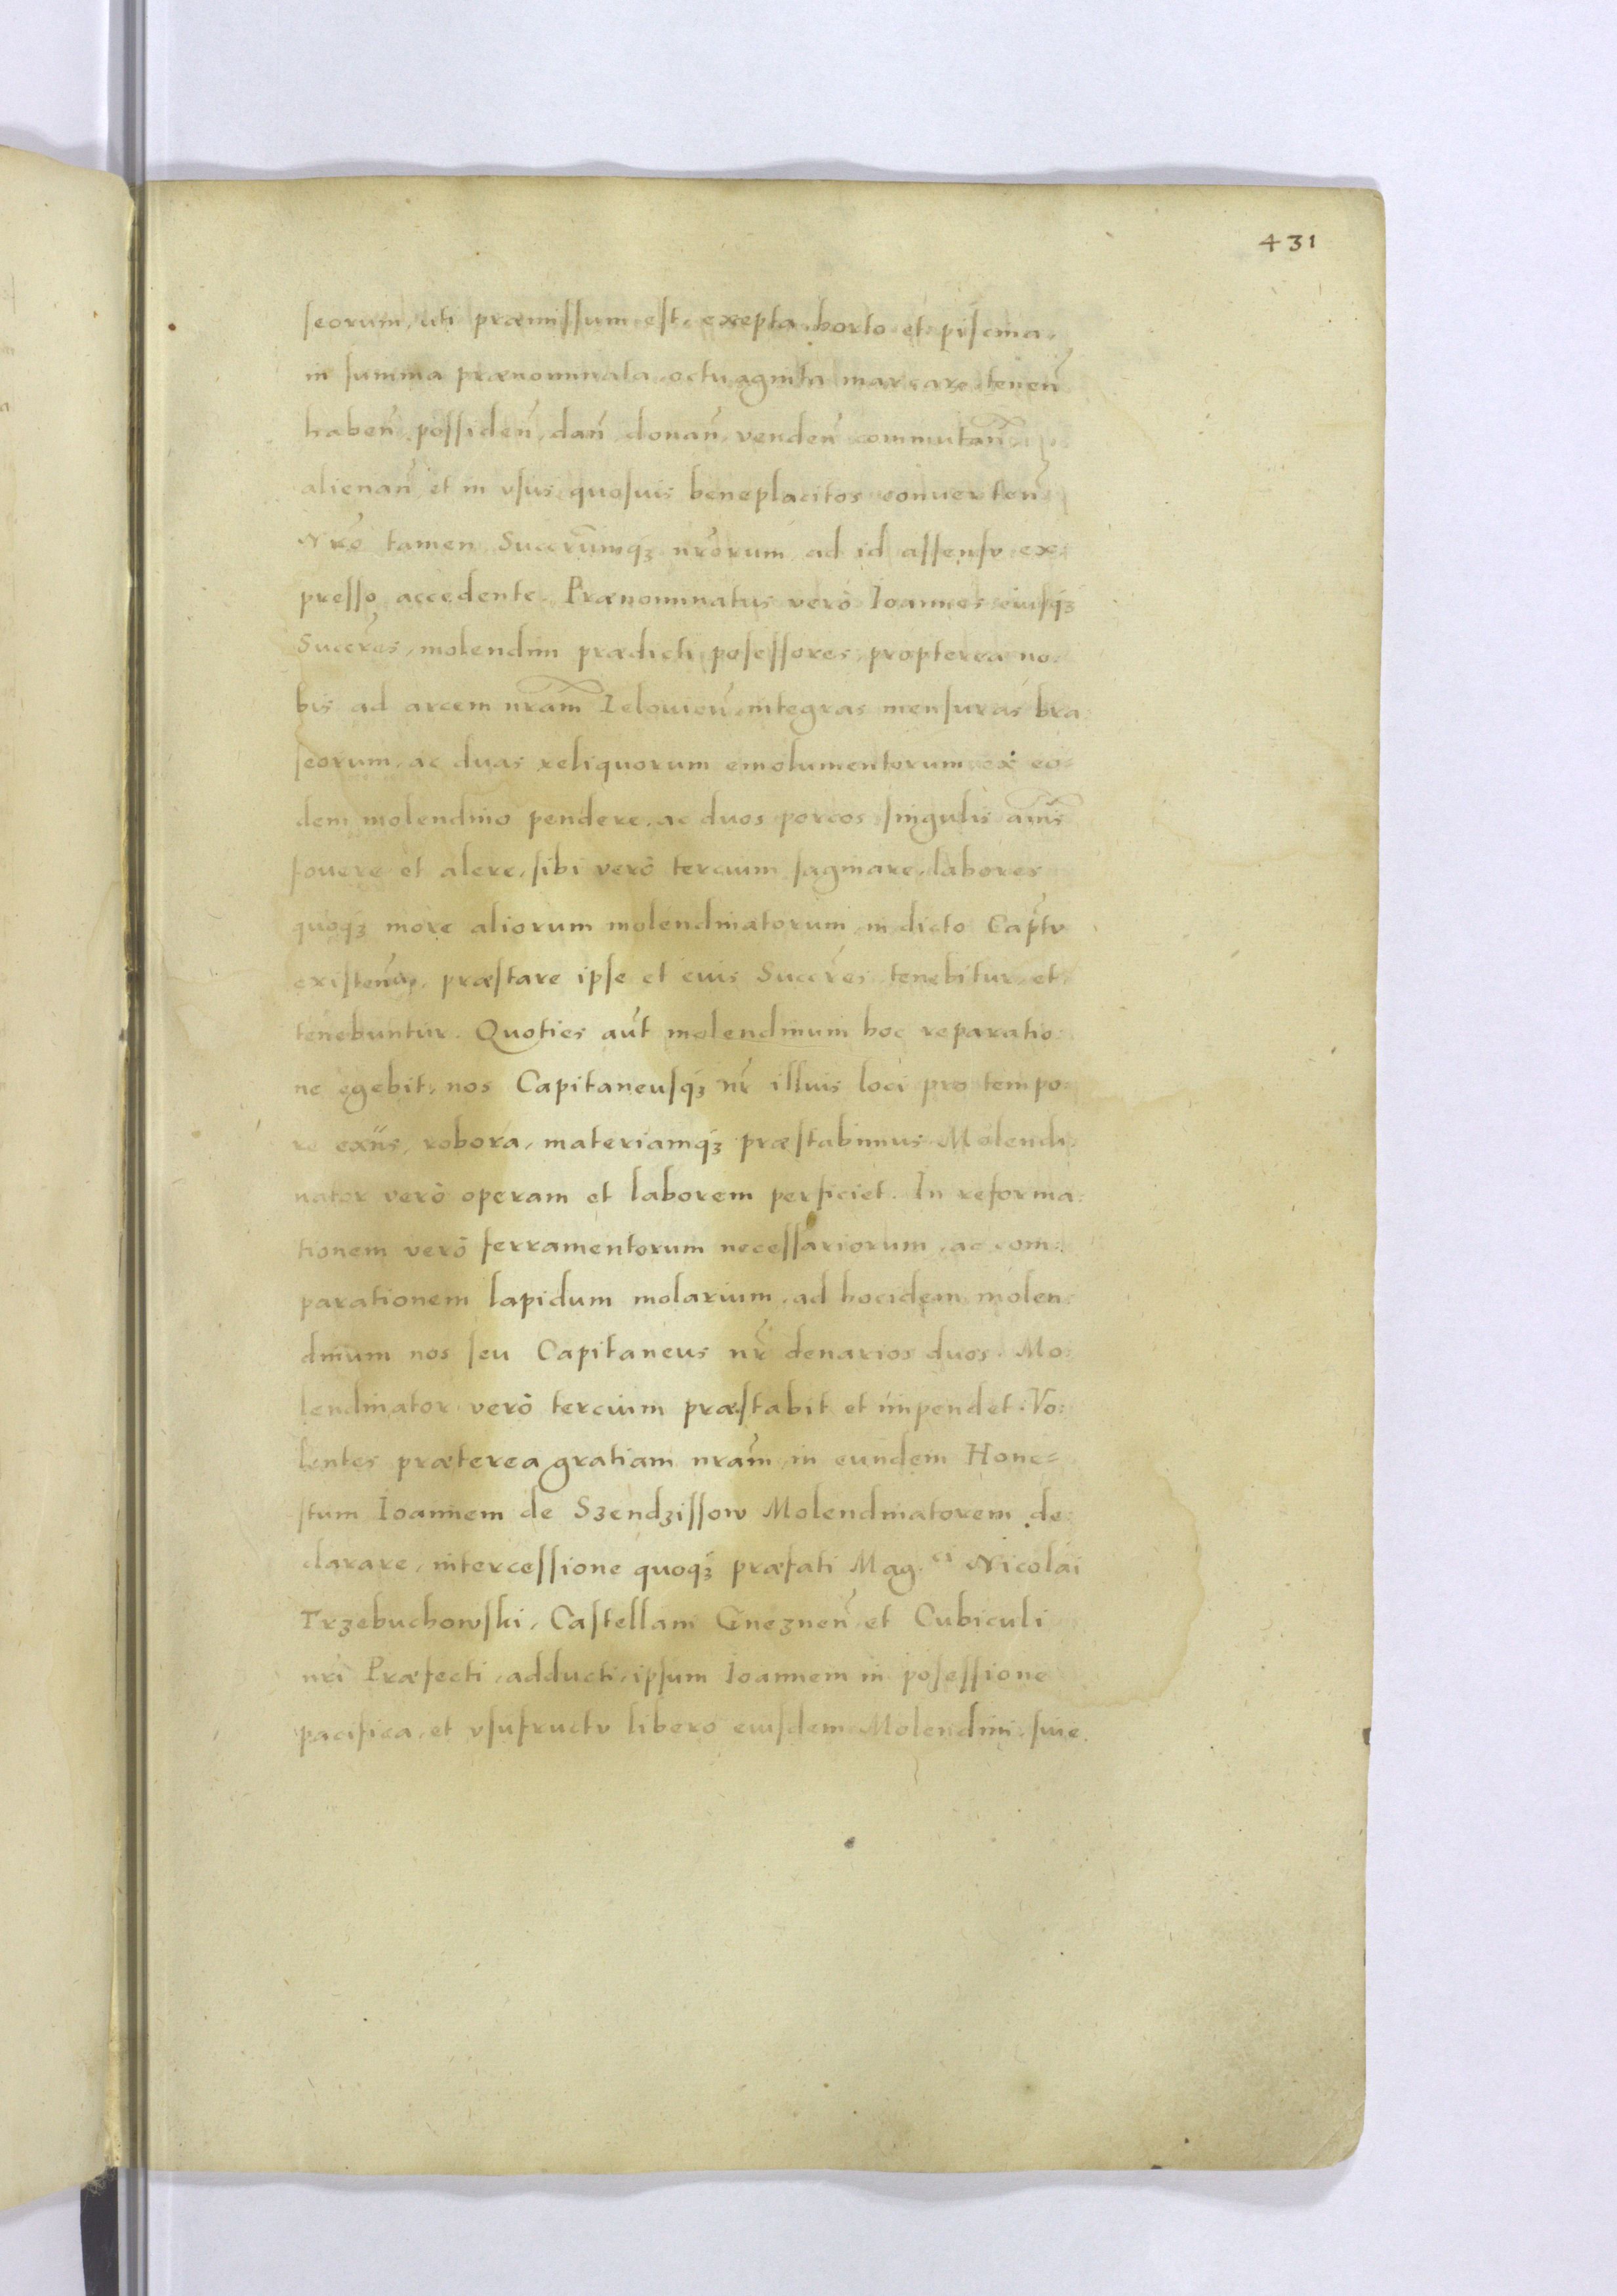 431
seorum, uti præmissum est, exepta horto et piscina,
in summa prænominata octuaginta marcare, teneñ
habeñ, possideñ, dañ, donañ, vendeñ commutañ,
alienañ et in vsus quosuis beneplacitos conuerteñ
Nr̃o tamen Succr̃umq3 nr̃orum ad id assensv ex:
presso accedente. Prænominatus verò Ioannes eiusq3
Succr̃es, molendini prædicti posessores, propterea no:
bis ad arcem nr̃am Ielouieñ, integras mensuras bra:
seorum, ac duas reliquorum emolumentorum ex eo:
dem molendino pendere, ac duos porcos singulis añis
fouere et alere, sibi verò tercium saginare, labores
quoq3 more aliorum molendinatorum, in dicto Cap̃tv
existeñ, præstare ipse et eius Succr̃es tenebitur, et
tenebuntur. Quoties aũt molendinum hoc reparatio:
ne egebit, nos Capitaneusq3 nr̃ illius loci pro tempo:
re exñs, robora, materiamq3 præstabimus. Molendi:
nator verò operam et laborem perficiet. In reforma:
tionem verò ferramentorum necessariorum, ac com:
parationem lapidum molarium, ad hocidem molen:
dinum nos seu Capitaneus nr̃ denarios duos. Mo:
lendinator verò tercium præstabit et impendet. Vo:
lentes præterea gratiam nr̃am, in eundem Hone=
stum Ioannem de Szendzissow Molendinatorem de:
clarare, intercessione quoq3 præfati Mag.ci Nicolai
Trzebuchowski, Castellani Gnezneñ et Cubiculi
nr̃i Præfecti, adducti, ipsum Ioannem in posessione
pacifica, et vsufructv libero eiusdem Molendini, siue